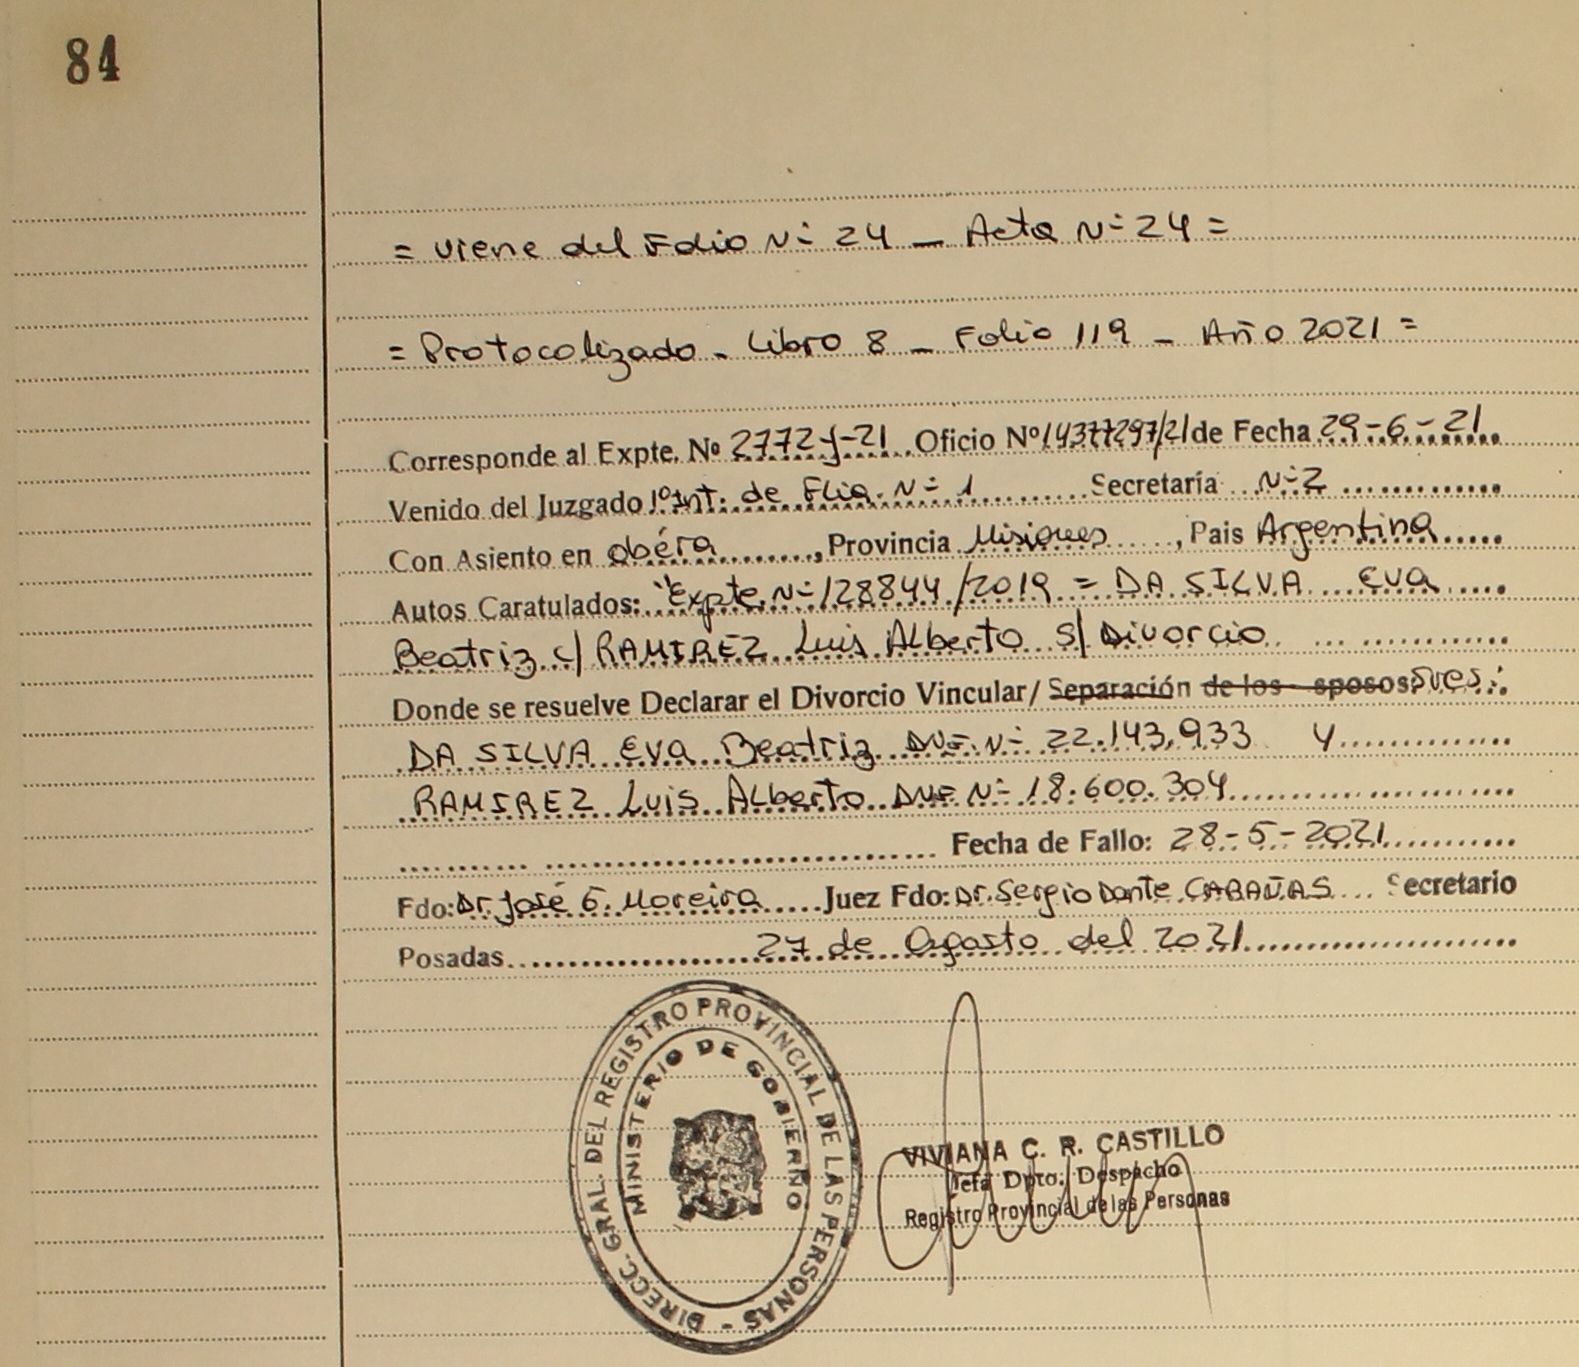 84
= Viene del Folio Nº 24 _ Acta Nº 24 =
= Protocolizado - Libro 8 _ Folio 119 _ Año 2021 =
Corresponde al Expte. Nº 2772-J-21 Oficio Nº 14377297/21 de Fecha 29-6-21
Venido del Juzgado 1º Int. de Flia. Nº 1 Secretaría Nº 2
Con Asiento en Oberá, Provincia Misiones, Pais Argentina
Autos Caratulados: "Expte. Nº 128844/2019 = DA SILVA Eva
Beatriz c/ RAMIREZ Luis Alberto S/ Divorcio
Donde se resuelve Declarar el Divorcio Vincular/ Separación de los sposos
DA SILVA Eva Beatriz DNI Nº 22.143.933 y
RAMIREZ Luis Alberto DNI Nº 18.600.304
Fecha de Fallo: 28-5-2021
Fdo: Dr. José G. Moreira Juez Fdo: Dr. Sergio Dante CABAÑAS Secretario
Posadas 27 de Agosto del 2021
DIRECC. GRAL. DEL REGISTRO PROVINCIAL DE LAS PERSONAS -
MINISTERIO DE GOBIERNO
VIVIANA C. R. CASTILLO
Jefa Dpto. Despacho
Registro Provincial de las Personas